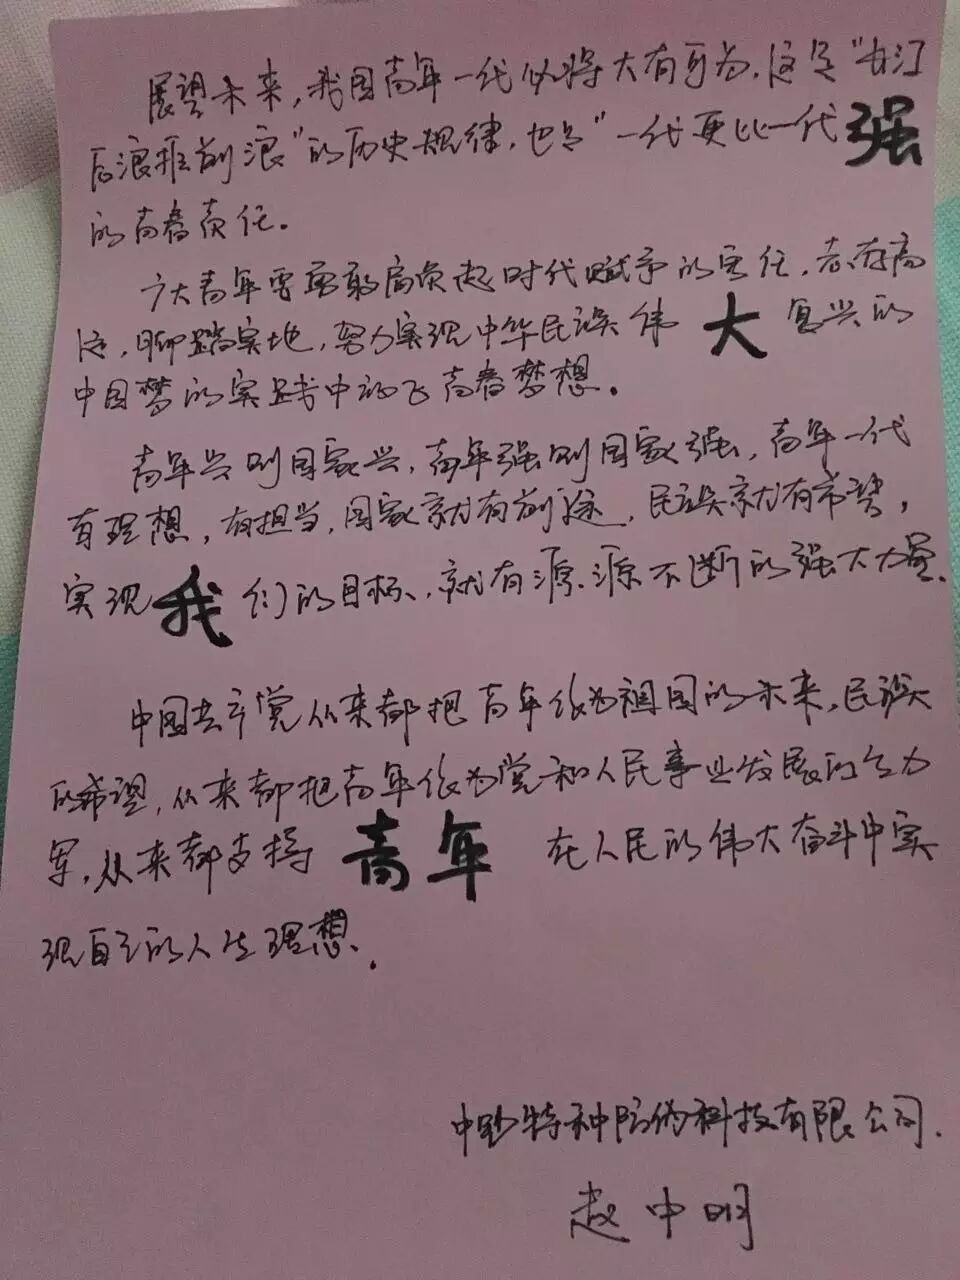 展望未来，我国青年一代必将大有可为，这是“长江
后浪推前浪”的历史规律，也是“一代更比一代强
的青春责任。
广大青年要勇敢肩负起时代赋予的责任，志存高
远，脚踏实地，努力实现中华民族伟大复兴的
中国梦的实践中放飞青春梦想。
青年兴则国家兴，青年强则国家强，青年一代
有理想，有担当，国家就有前途，民族就有希望，
实现我们的目标，就有源源不断的强大力量.
中国共产党从来都把青年作为祖国的未来，民族
的希望，从来都把青年作为党和人民事业发展的生力
军，从来都支持青年在人民的伟大奋斗中实
现自己的人生理想.
中钞特种防伪科技有限公司.
赵中明